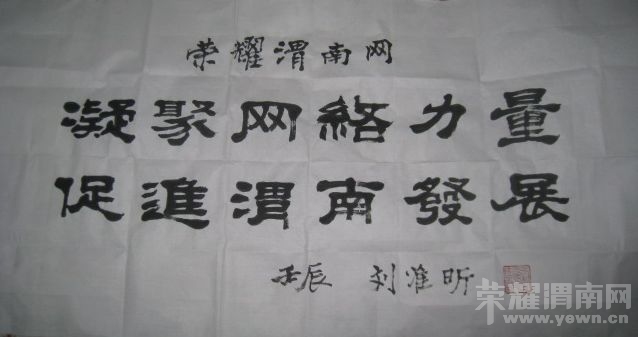 荣耀渭南网
凝聚网络力量
促進渭南發展
壬辰 刘淮昕
荣耀渭南网
www.yewn.cn